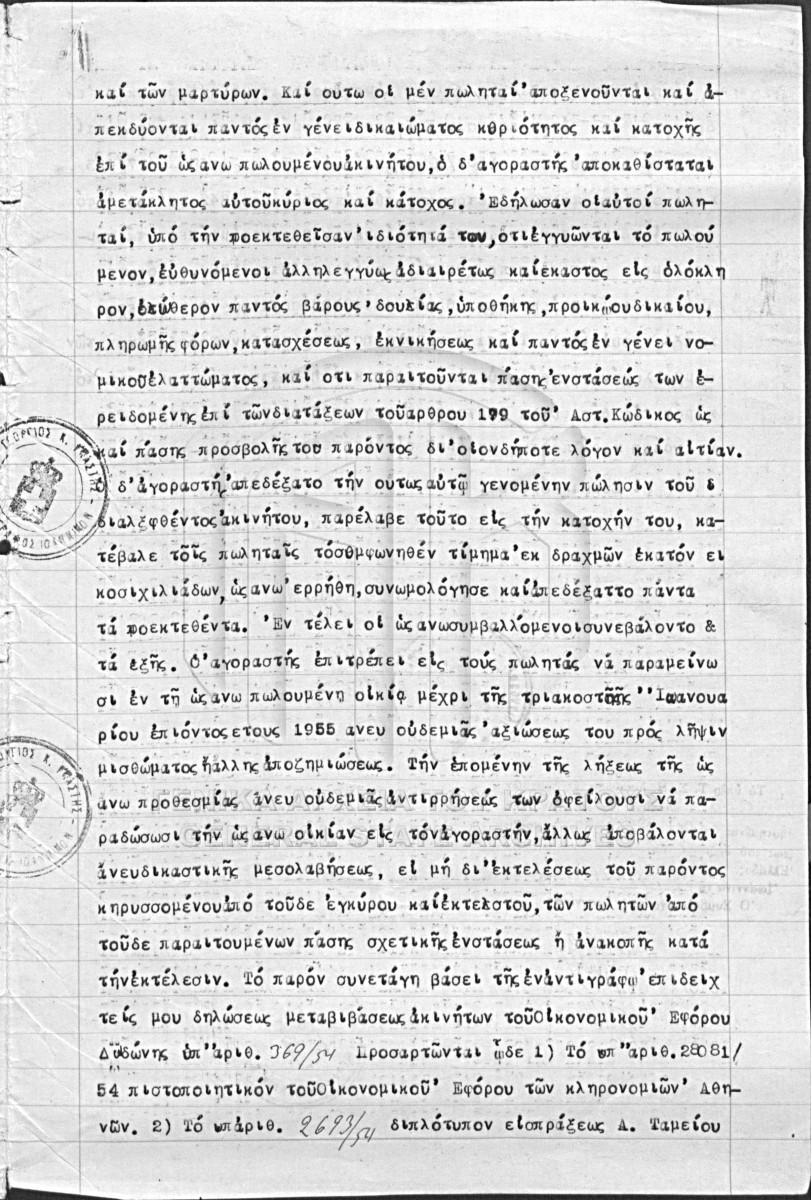 καί τῶν μαρτύρων. Καί ουτω οι μέν πωληταί ἀποξενοῦνται καί ἀ-
πεκδύονται παντόςἐν γένειδικαιώματος κθριότητος καί κατοχῆς
ἐπί τοῦ ὡςανω πωλουμένουἀκινήτου,ὁ δ'ἀγοραστής ἀποκαθίσταται
ἀμετάκλητος αὐτοῦκύριος καί κάτοχος. Ἐδήλωσαν οιαὐτοί πωλη-
ταί, ὑπό τήν φοεκτεθεῖσαν ἰδιότητά των,οτιἐγγυῶνται τό πωλού
μενον,εὐθυνόμενοι ἀλληλεγγύως ἀδιαιρέτως καίεκαστος εἰς ὁλόκλη
ρον,ἐλεύθερον παντός βάρους,δουλείας,ὑποθήκης,προικῴουδικαίου,
πληρωμῆς φόρων,κατασχέσεως, ἐκνικήσεως καί παντόςἐν γένει νο-
μικοῦἐλαττώματος, καί οτι παραιτοῦνται πάσης ἐνστάσεώς των ἐ-
ρειδομένηςἐπί τῶνδιατάξεων τοῦαρθρου 179 τοῦ Ἀστ.Κώδικος ὡς
καί πάσης προσβολῆςτου παρόντος δι'οἱονδήποτε λόγον καί αἰτίαν.
Ο δ'ἀγοραστής ἀπεδέξατο τήν ουτωςαὐτῷ γενομένην πώλησιν τοῦ δ
διαλξφθέντοςἀκινήτου, παρέλαβε τοῦτο εἰς τήν κατοχήν του, κα-
τέβαλε τοῖς πωληταῖς τόσθμφωνηθέν τίμημα ἐκ δραχμῶν ἑκατόν εἰ
κοσιχιλιάδων, ὡςανω ἐρρήθη,συνωμολόγησε καίἀπεδέξαττο πάντα
τά φοεκτεθέντα. Ἐν τέλει οἱ ὡςανωσυμβαλλόμενοισυνεβάλοντο &
τά ἑξῆς. Ὁ ἀγοραστής ἐπιτρέπει εἰς τούς πωλητάς νά παραμείνω
σι ἐν τῇ ὡςανω πωλουμένῃ οἰκίᾳ μέχρι τῆς τριακοστῆς Ἰανουα
ρίου ἐπιόντοςετους 1955 ανευ οὐδεμιᾶς ἀξιώσεως του πρός λῆψιν
μισθώματος ἤἄλλης ἀποζημιώσεως. Τήν ἑπομένην τῆς λήξεως τῆς ὡς
ανω προθεσμίας ἄνευ οὐδεμιᾶςἀντιρρήσεώς των ὀφείλουσι νά πα-
ραδώσωσι τήν ὡςανω οἰκίαν εἰς τόνἀγοραστήν,ἄλλως ἀποβάλονται
ἀνευδικαστικῆς μεσολαβήσεως, εἰ μή δι'ἐκτελέσεως τοῦ παρόντος
κηρυσσομένουἀπό τοῦδε ἐγκύρου καίἐκτελστοῦ,τῶν πωλητῶν ἀπό
τοῦδε παραιτουμένων πάσης σχετικῆς ἐνστάσεως ἤ ἀνακοπῆς κατά
τήνἐκτέλεσιν. Τό παρόν συνετάγη βάσει τῆς ἐνἀντιγράφῳ ἐπιδειχ
τείς μου δηλώσεως μεταβιβάσεως ἀκινήτων τοῦΟἰκονομικοῦ Ἐφόρου
Δωδώνης ὑπ'ἀριθ. 369/54 Προσαρτῶνται ᾧδε 1) Τό υπ'ἀριθ.28081/
54 πιστοποιητικόν τοῦΟἰκονομικοῦ Ἐφόρου τῶν κληρονομιῶν Ἀθη-
νῶν. 2) Τό υπἀριθ. 2693/54 διπλότυπον εἰσπράξεως Δ. Ταμείου
ΓΕΝΙΚΑ ΑΡΧΕΙΑ ΤΟΥ ΚΡΑΤΟΥΣ
GENERAL STATE ARCHIVES